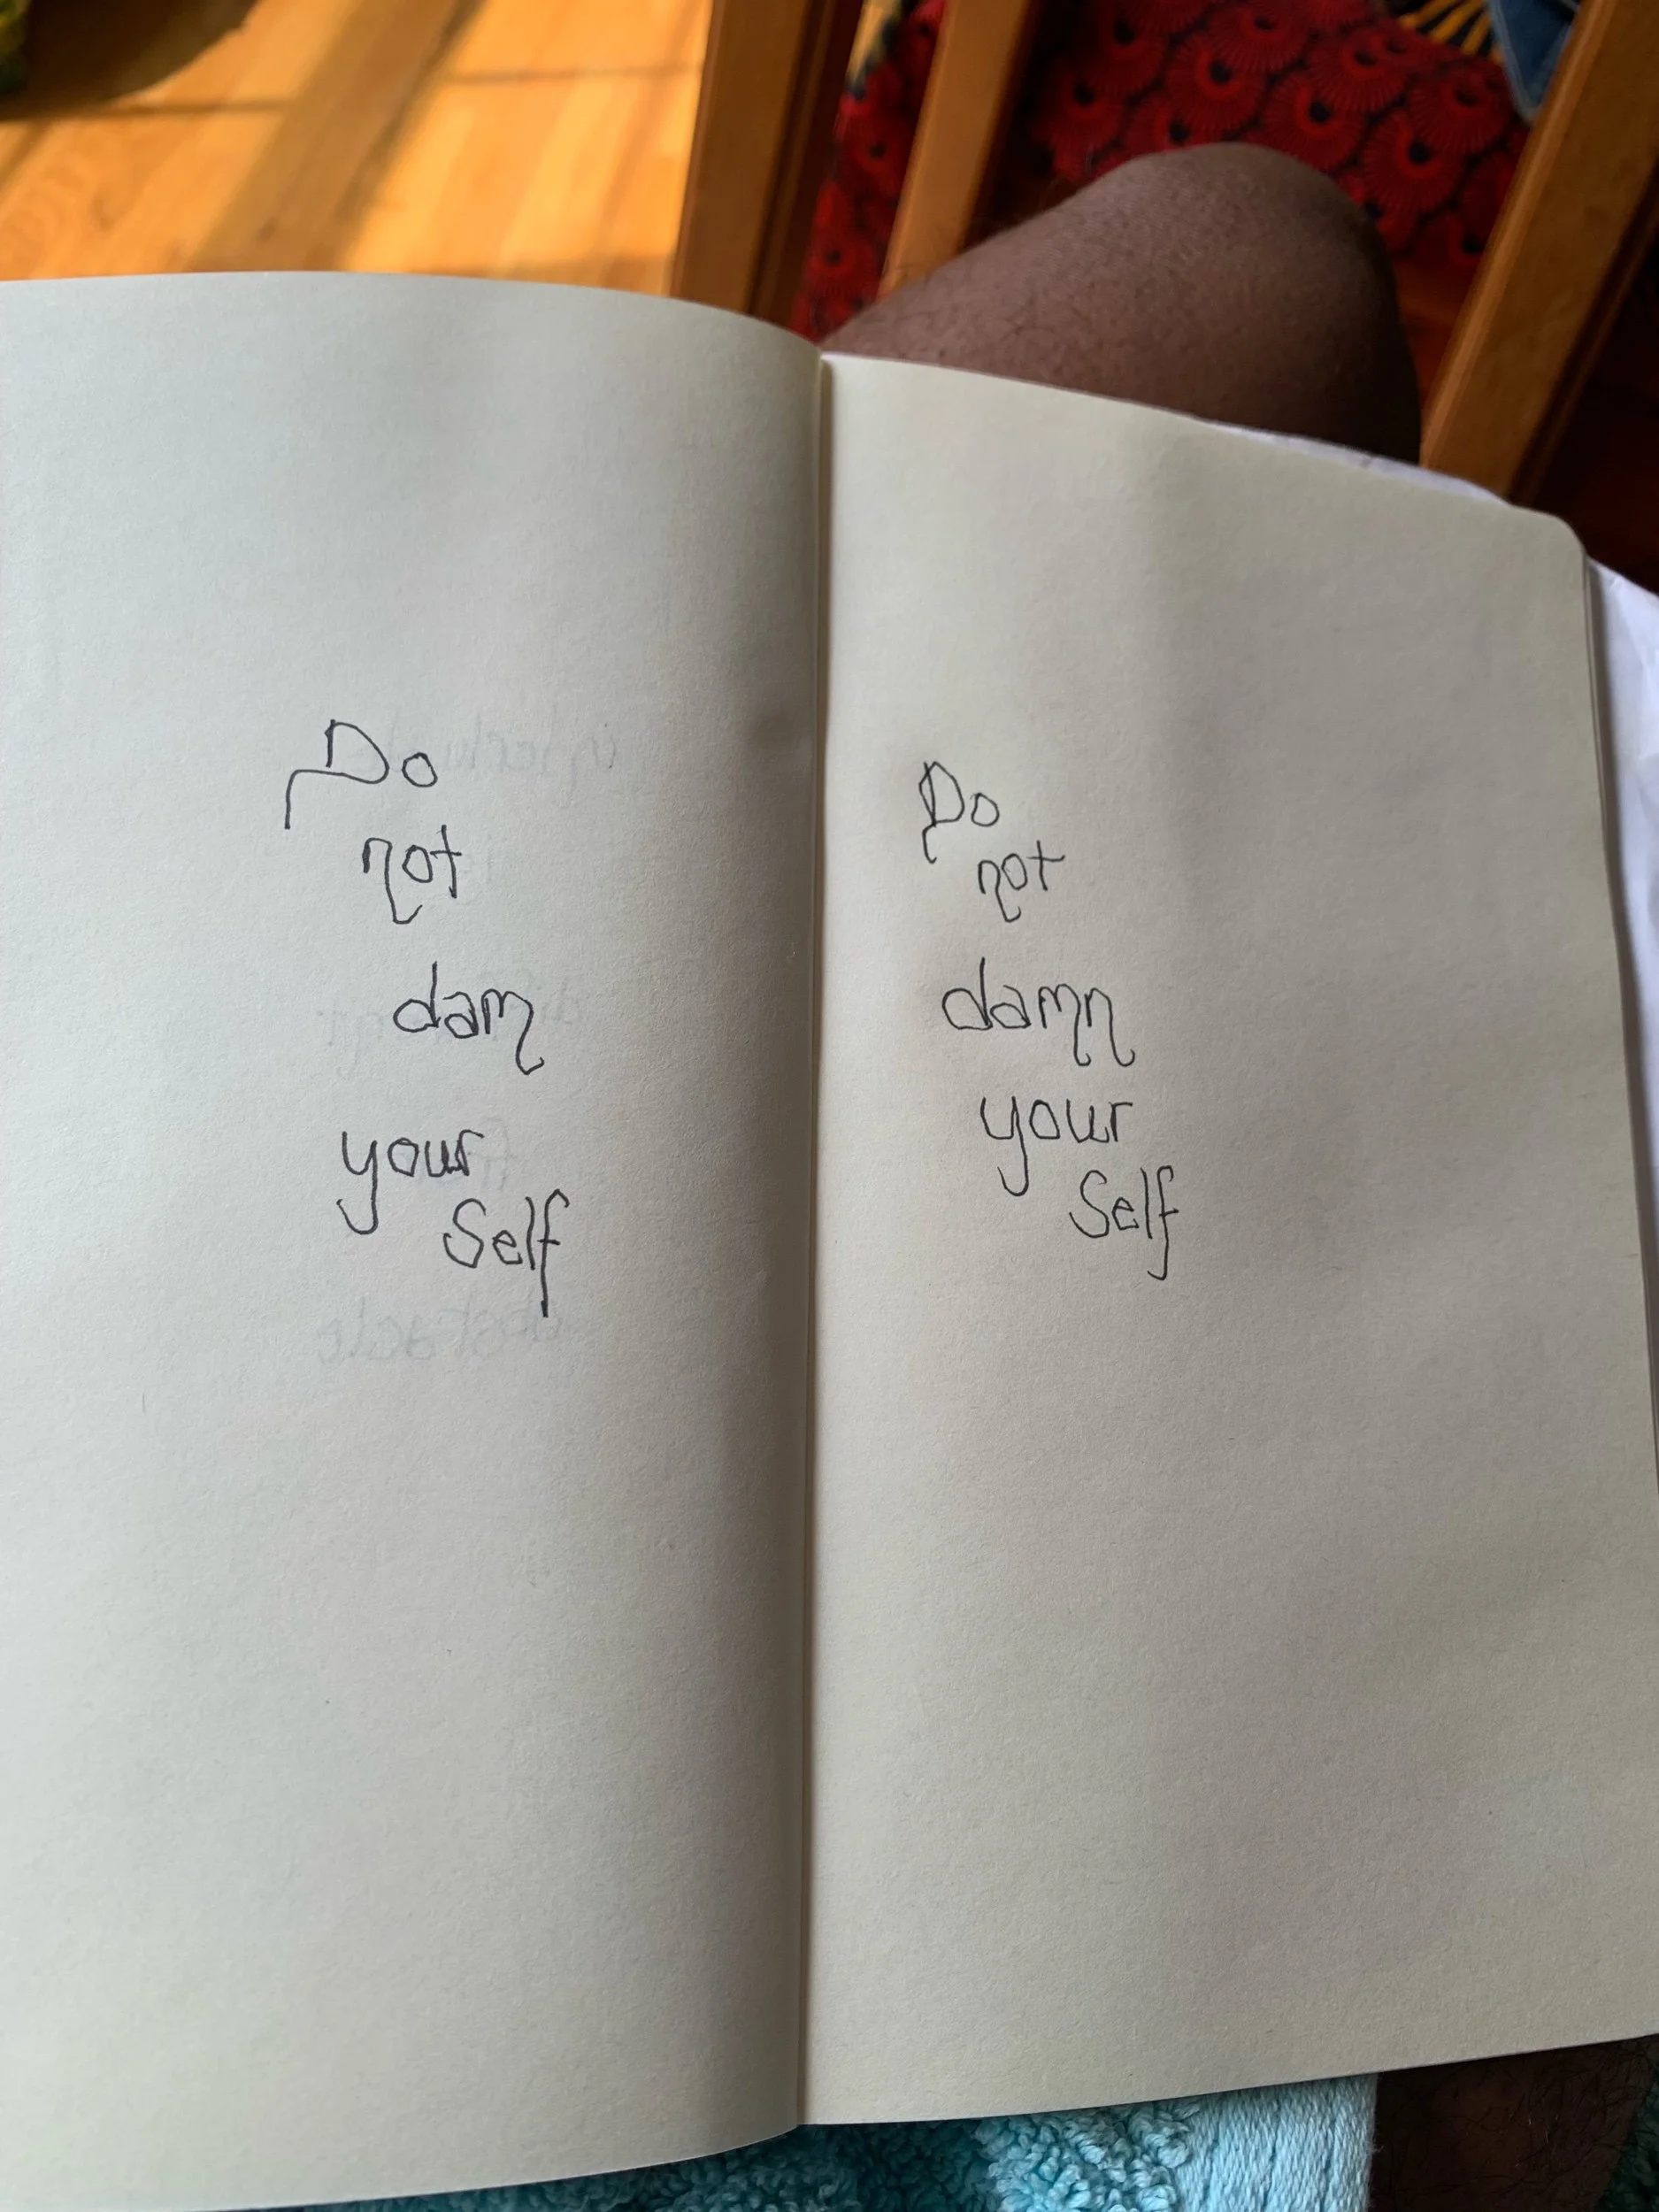 Do
not
dam
your
Self
Do
not
damn
your
Self